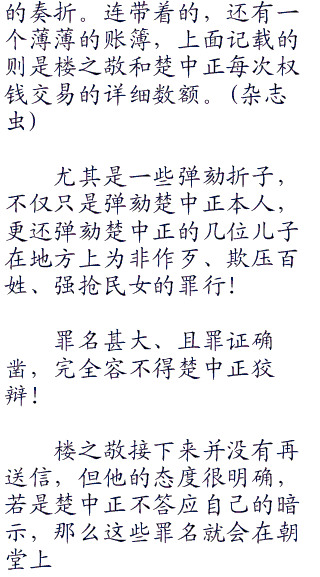 的奏折。连带着的，还有一
个薄薄的账簿，上面记载的
则是楼之敬和楚中正每次权
钱交易的详细数额。(杂志
虫)
尤其是一些弹劾折子，
不仅只是弹劾楚中正本人，
更还弹劾楚中正的几位儿子
在地方上为非作歹、欺压百
姓、强抢民女的罪行!
罪名甚大、且罪证确
凿，完全容不得楚中正狡
辩!
楼之敬接下来并没有再
送信，但他的态度很明确，
若是楚中正不答应自己的暗
示，那么这些罪名就会在朝
堂上